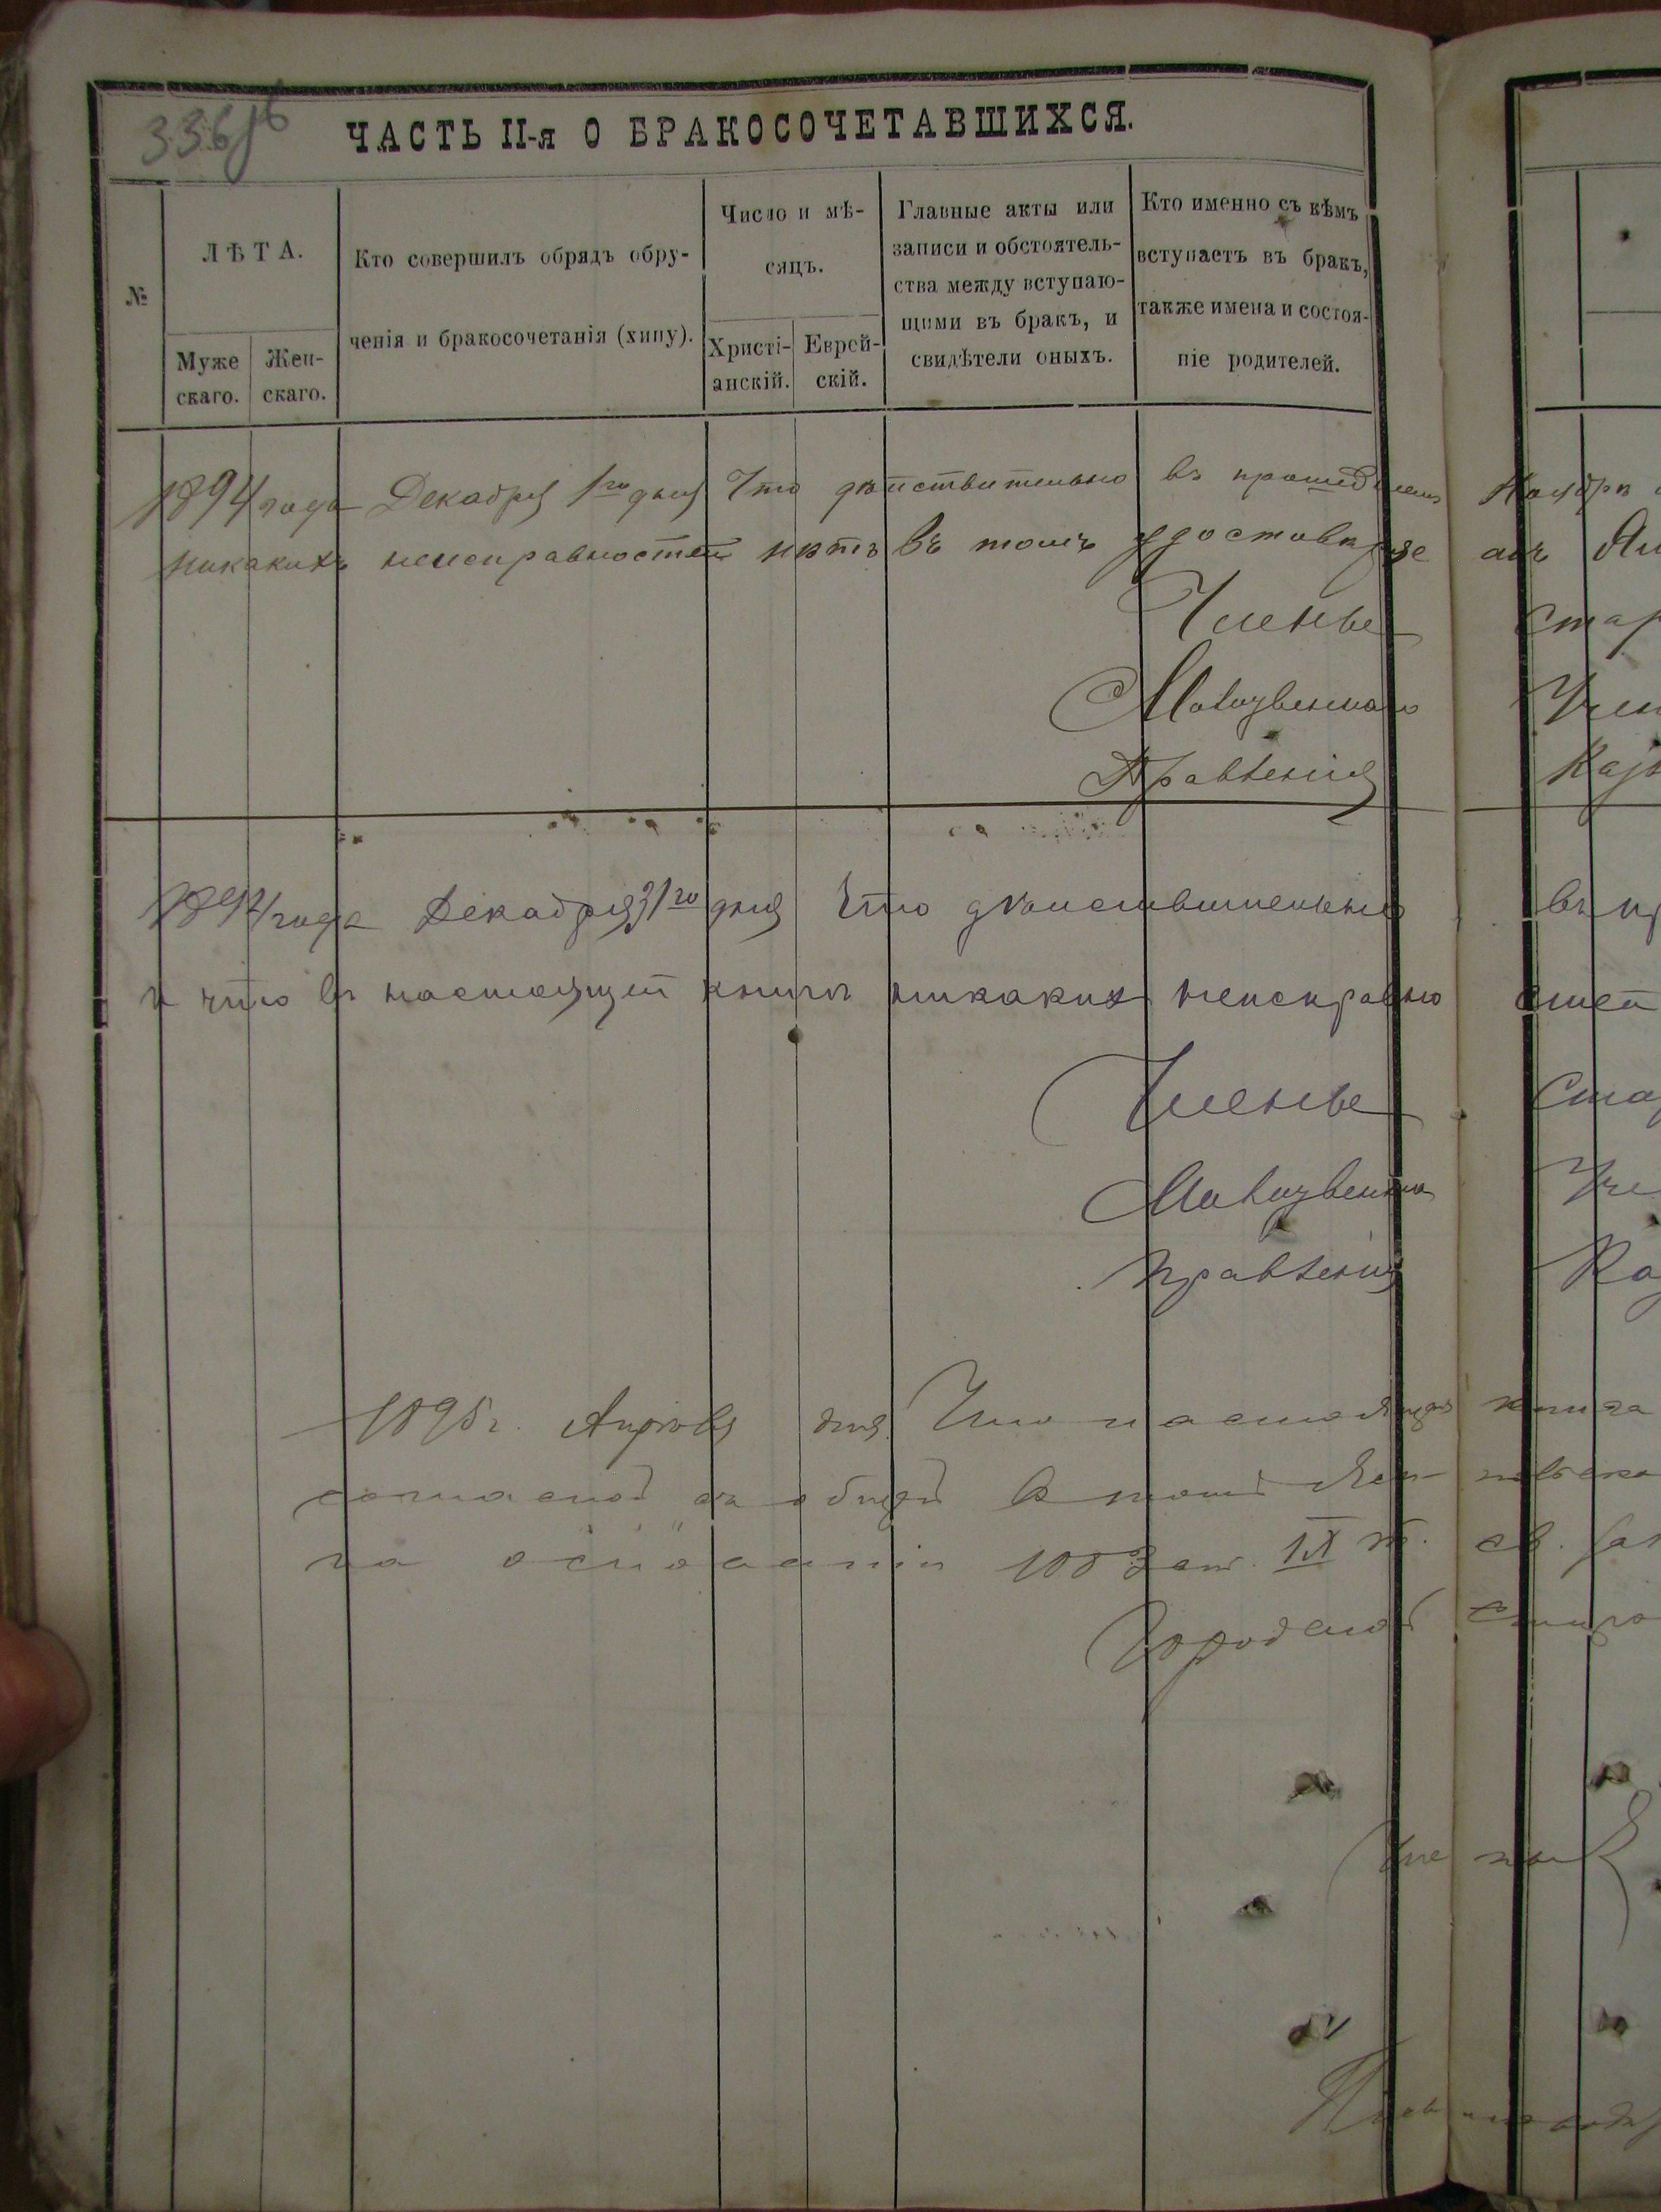 336
ЧАСТЬ II-я О БРАКОСОЧЕТАВШИХСЯ.
№
ЛѢТА.
Муже
скаго.
Жен-
скаго.
Кто совершилъ обрядъ обру-
ченія и бракосочетанія (хипу).
Число и мѣ-
сяцъ.
Христі-
анскій.
Еврей-
скій.
Главные акты или
записи и обстоятель-
ства между вступаю-
щими въ бракъ, и
свидѣтели оныхъ.
Кто именно съ кѣмъ
вступаетъ въ бракъ,
также имена и состоя-
ніе родителей.
1894 года Декабря 1го дня Что дѣйствительно въ прошедшемъ Ноябрѣ
никакихъ неисправностей нѣтъ въ томъ удостовѣряе
Члены
Молитвеннаго
Правленія
1894 года Декабря 31го дня Что дѣйствительно въ пр
и что въ настоящей книгѣ никакихъ неисправно стей
Члены
Молитвенна
Правленія
1895 г. Апрѣля дня Что настоящая книга
на основаніи ст. IX т. св. Зак
Городской